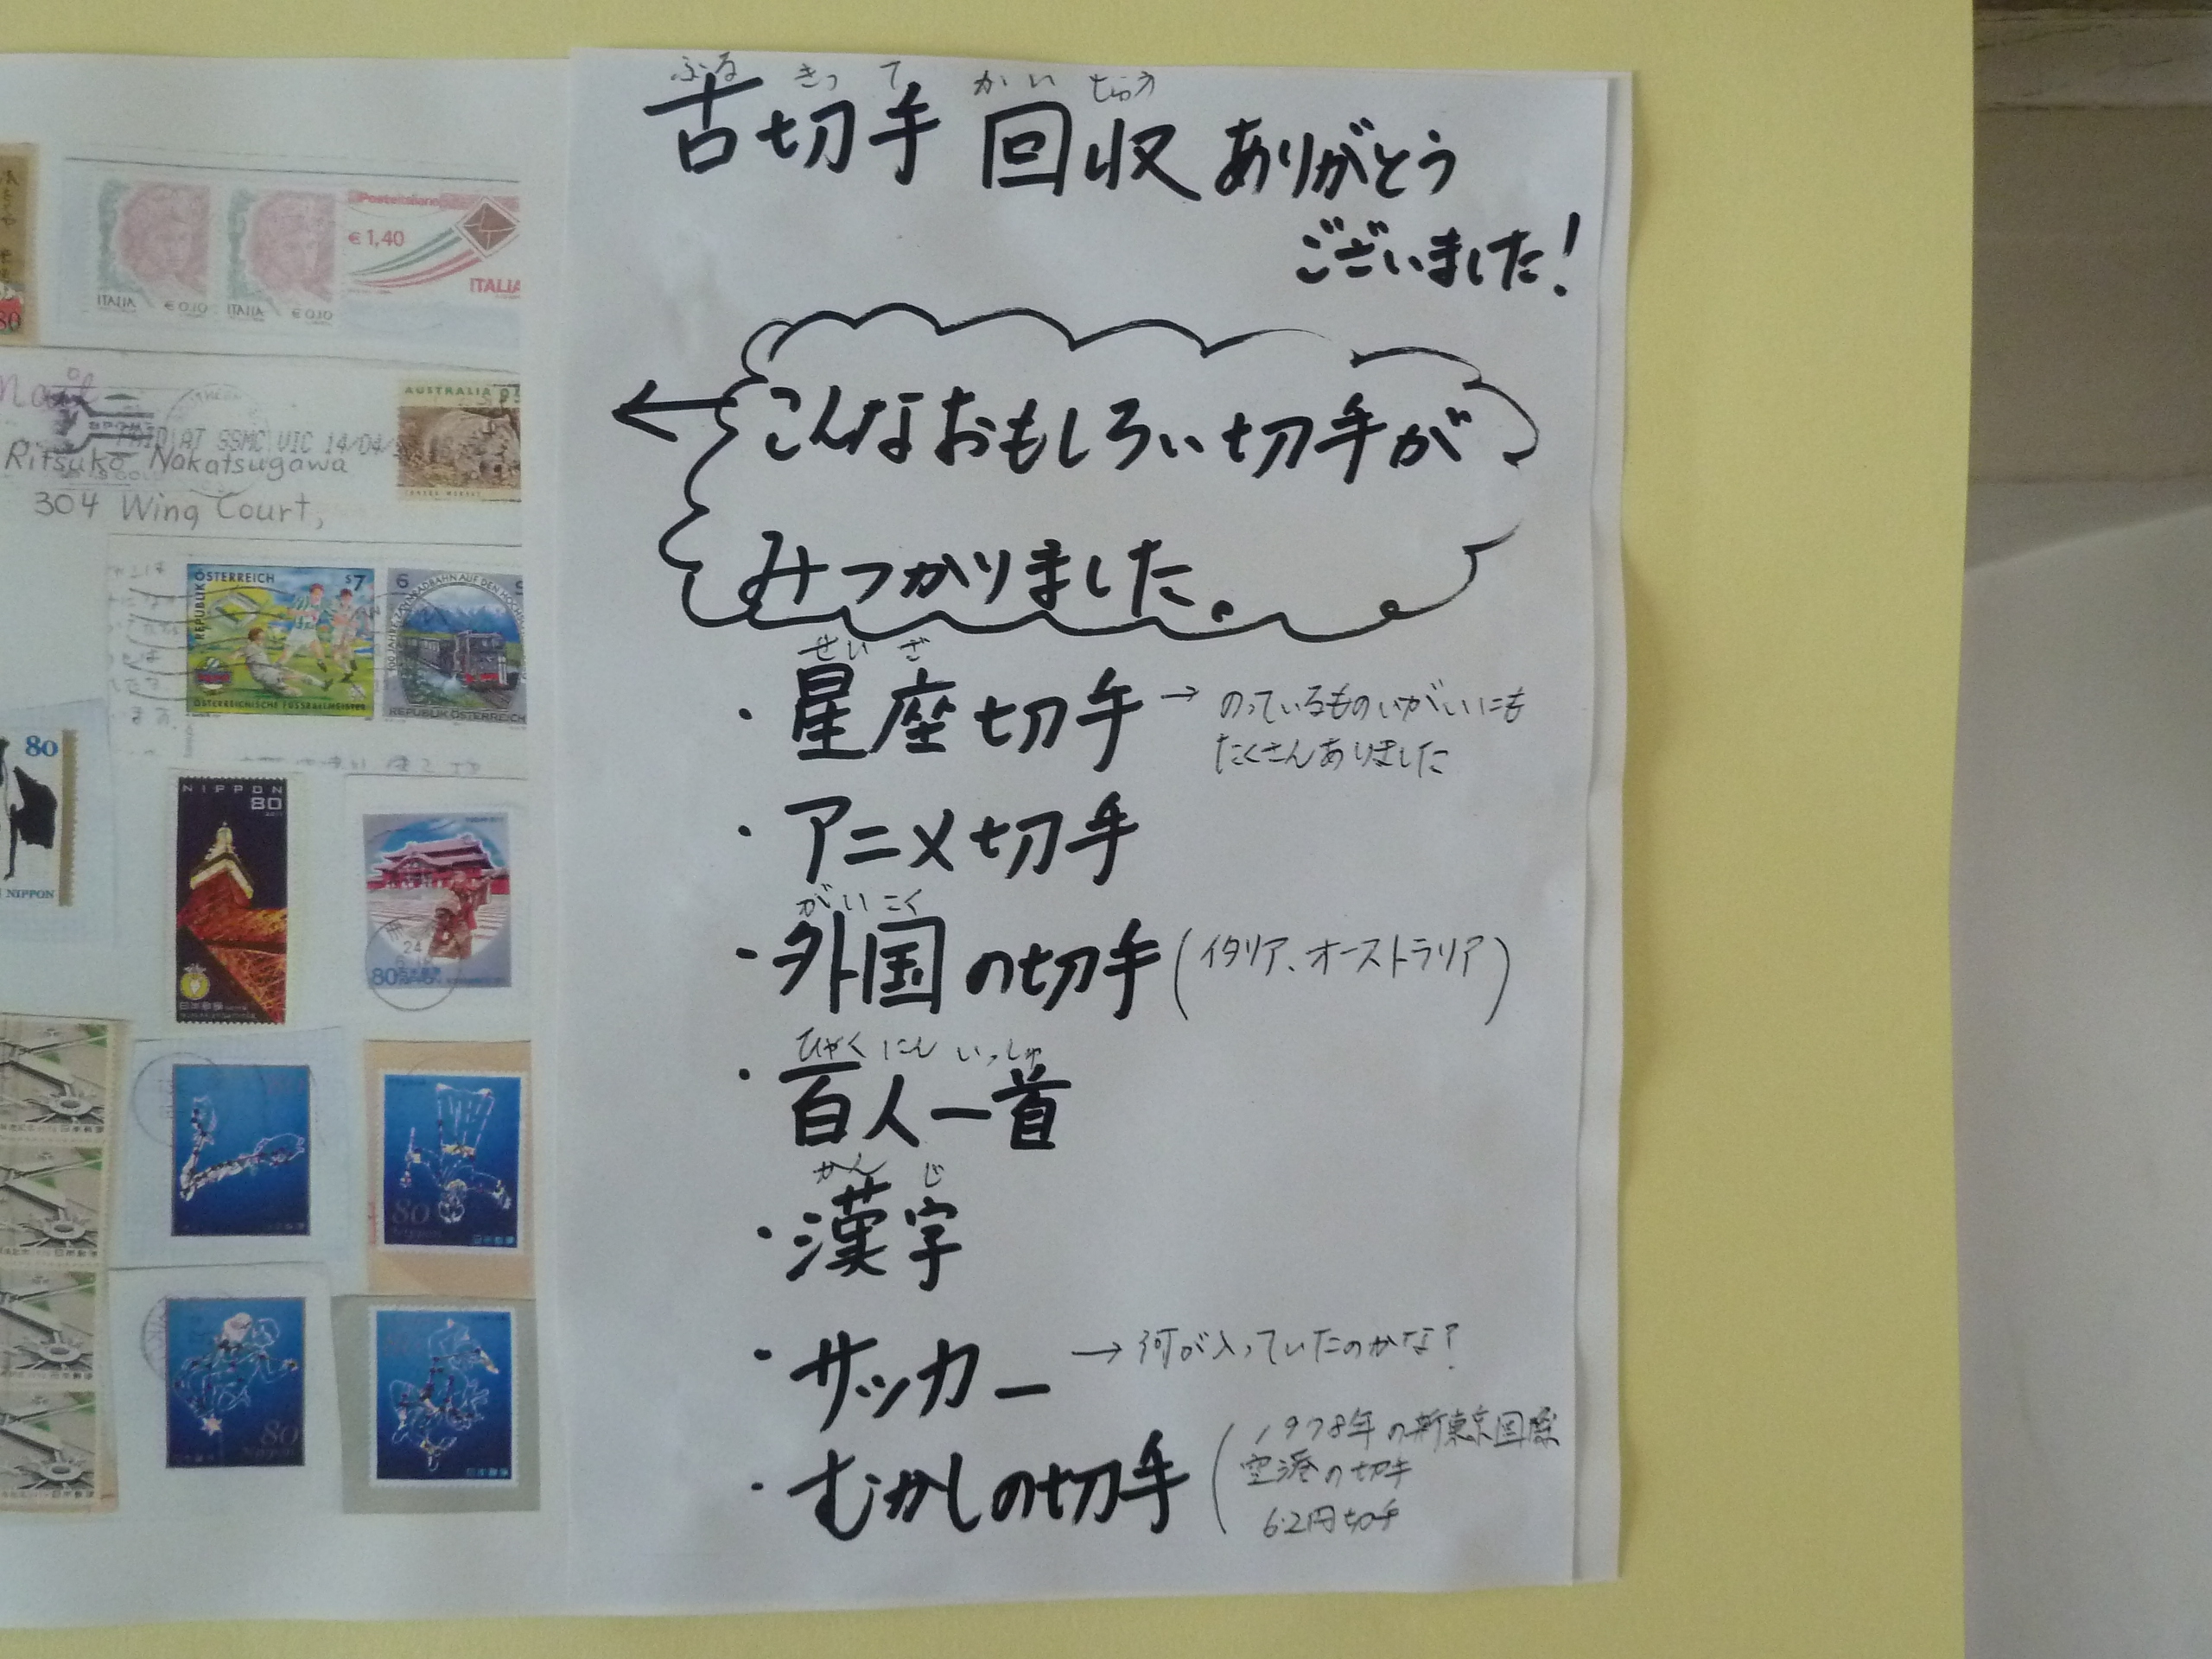 ふる きっ て かい しゅう
古切手 回収 ありがとう
ございました!
← こんなおもしろい切手が
みつかりました。
せいざ
・星座切手 → のっているものいがいにも
たくさんありました
・アニメ切手
がいこく
・外国の切手(イタリア、オーストラリア)
ひゃくにんいっしゅ
・百人一首
かんじ
・漢字
・サッカー → 何が入っていたのかな?
・むかしの切手(1978年の新東京国際
空港の切手
62円切手
80
Posteitaliane
€1,40
ITALIA
ITALIA €0,10
ITALIA €0,10
AUSTRALIA
PAID AT SSMC VIC 14/04/
Ritsuko Nakatsugawa
304 Wing Court,
REPUBLIK ÖSTERREICH S7
ÖSTERREICHISCHE FUSSBALLMEISTER
6
REPUBLIK ÖSTERREICH
80
NIPPON
NIPPON
80
日本郵便
24
80 日本郵便
日本郵便
80
Nippon
日本郵便
日本郵便
80
Nippon
日本郵便
日本郵便